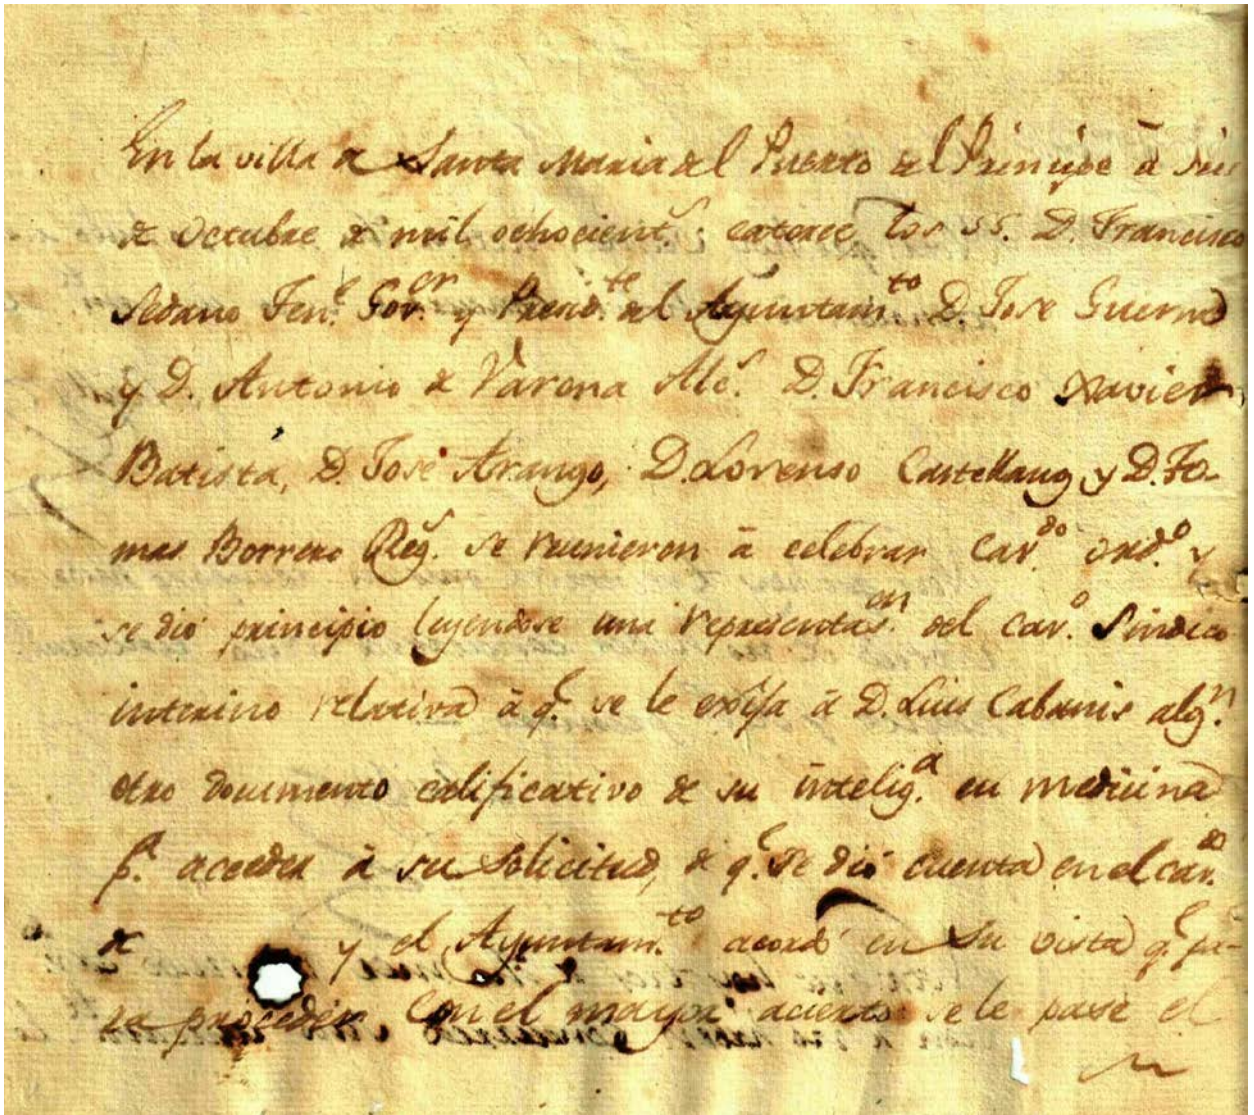 En la villa de Santa Maria del Puerto del Principe â seis
de Octubre de mil ochocient.s catorce los SS. D. Francisco
Sedano Ten.e Gov.or y Presid.te del Ayuntam.to D. Jose Guerra
y D. Antonio de Varona Alc.s D. Francisco Xavier
Batista, D. José Arango, D. Lorenso Castellanos y D. To-
mas Borrero Reg.s se reunieron â celebrar Cav.do ord.o y
se dió principio leyendose una representas.on del Cav.o Sindico
interino relativa â q.e se le exija â D. Luis Cabanis alg.n
otro documento calificativo de su intelig.a en medicina
p.a acceder â su solicitud, de q.e se dió cuenta en el cav.do
de y el Ayuntam.to acordó en su vista q.e pa-
ra proceder con el mayor acierto se le pase el